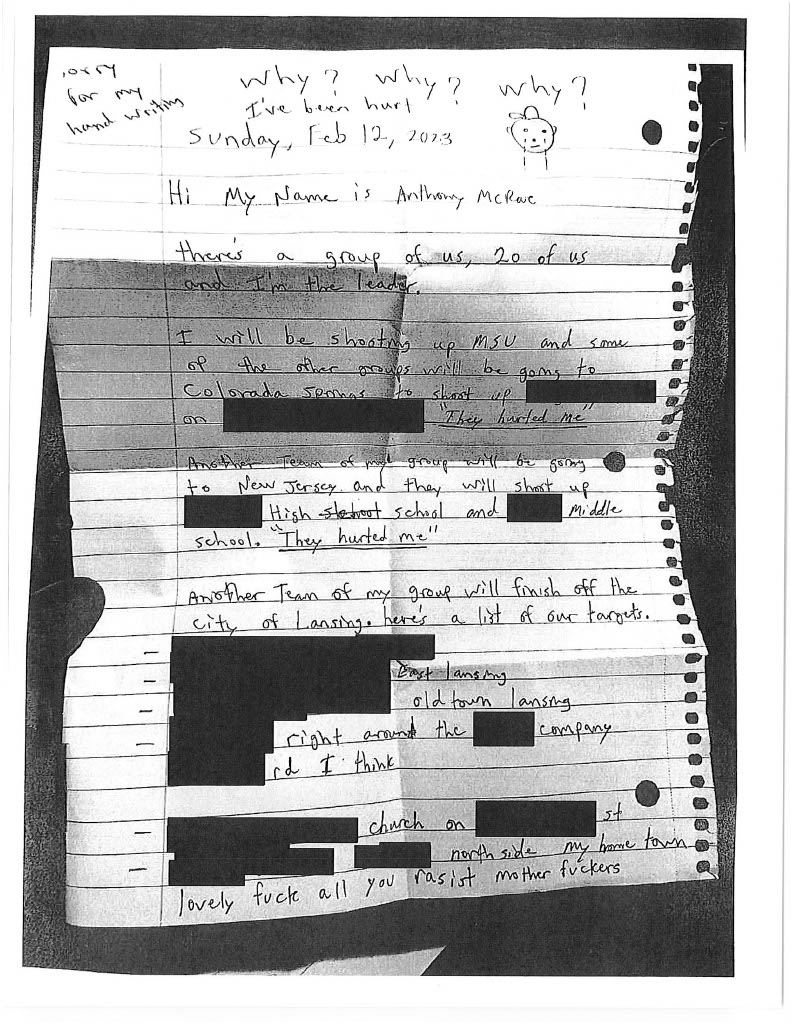 sorry
for my
hand writing
Why? Why? Why?
I've been hurt
Sunday, Feb 12, 2023
Hi My Name is Anthony McRae
there's a group of us, 20 of us
and I'm the leader.
I will be shooting up MSU and some
of the other groups will be going to
Colorada Springs to shoot up
on "They hurted me"
Another Team of my group will be going
to New Jersey and they will shoot up
High shohoot school and Middle
school. "They hurted me"
Another Team of my group will finish off the
city of Lansing. here's a list of our targets.
East lansing
old town lansing
right around the company
rd I think
church on st
north side my home town
lovely fuck all you rasist mother fuckers